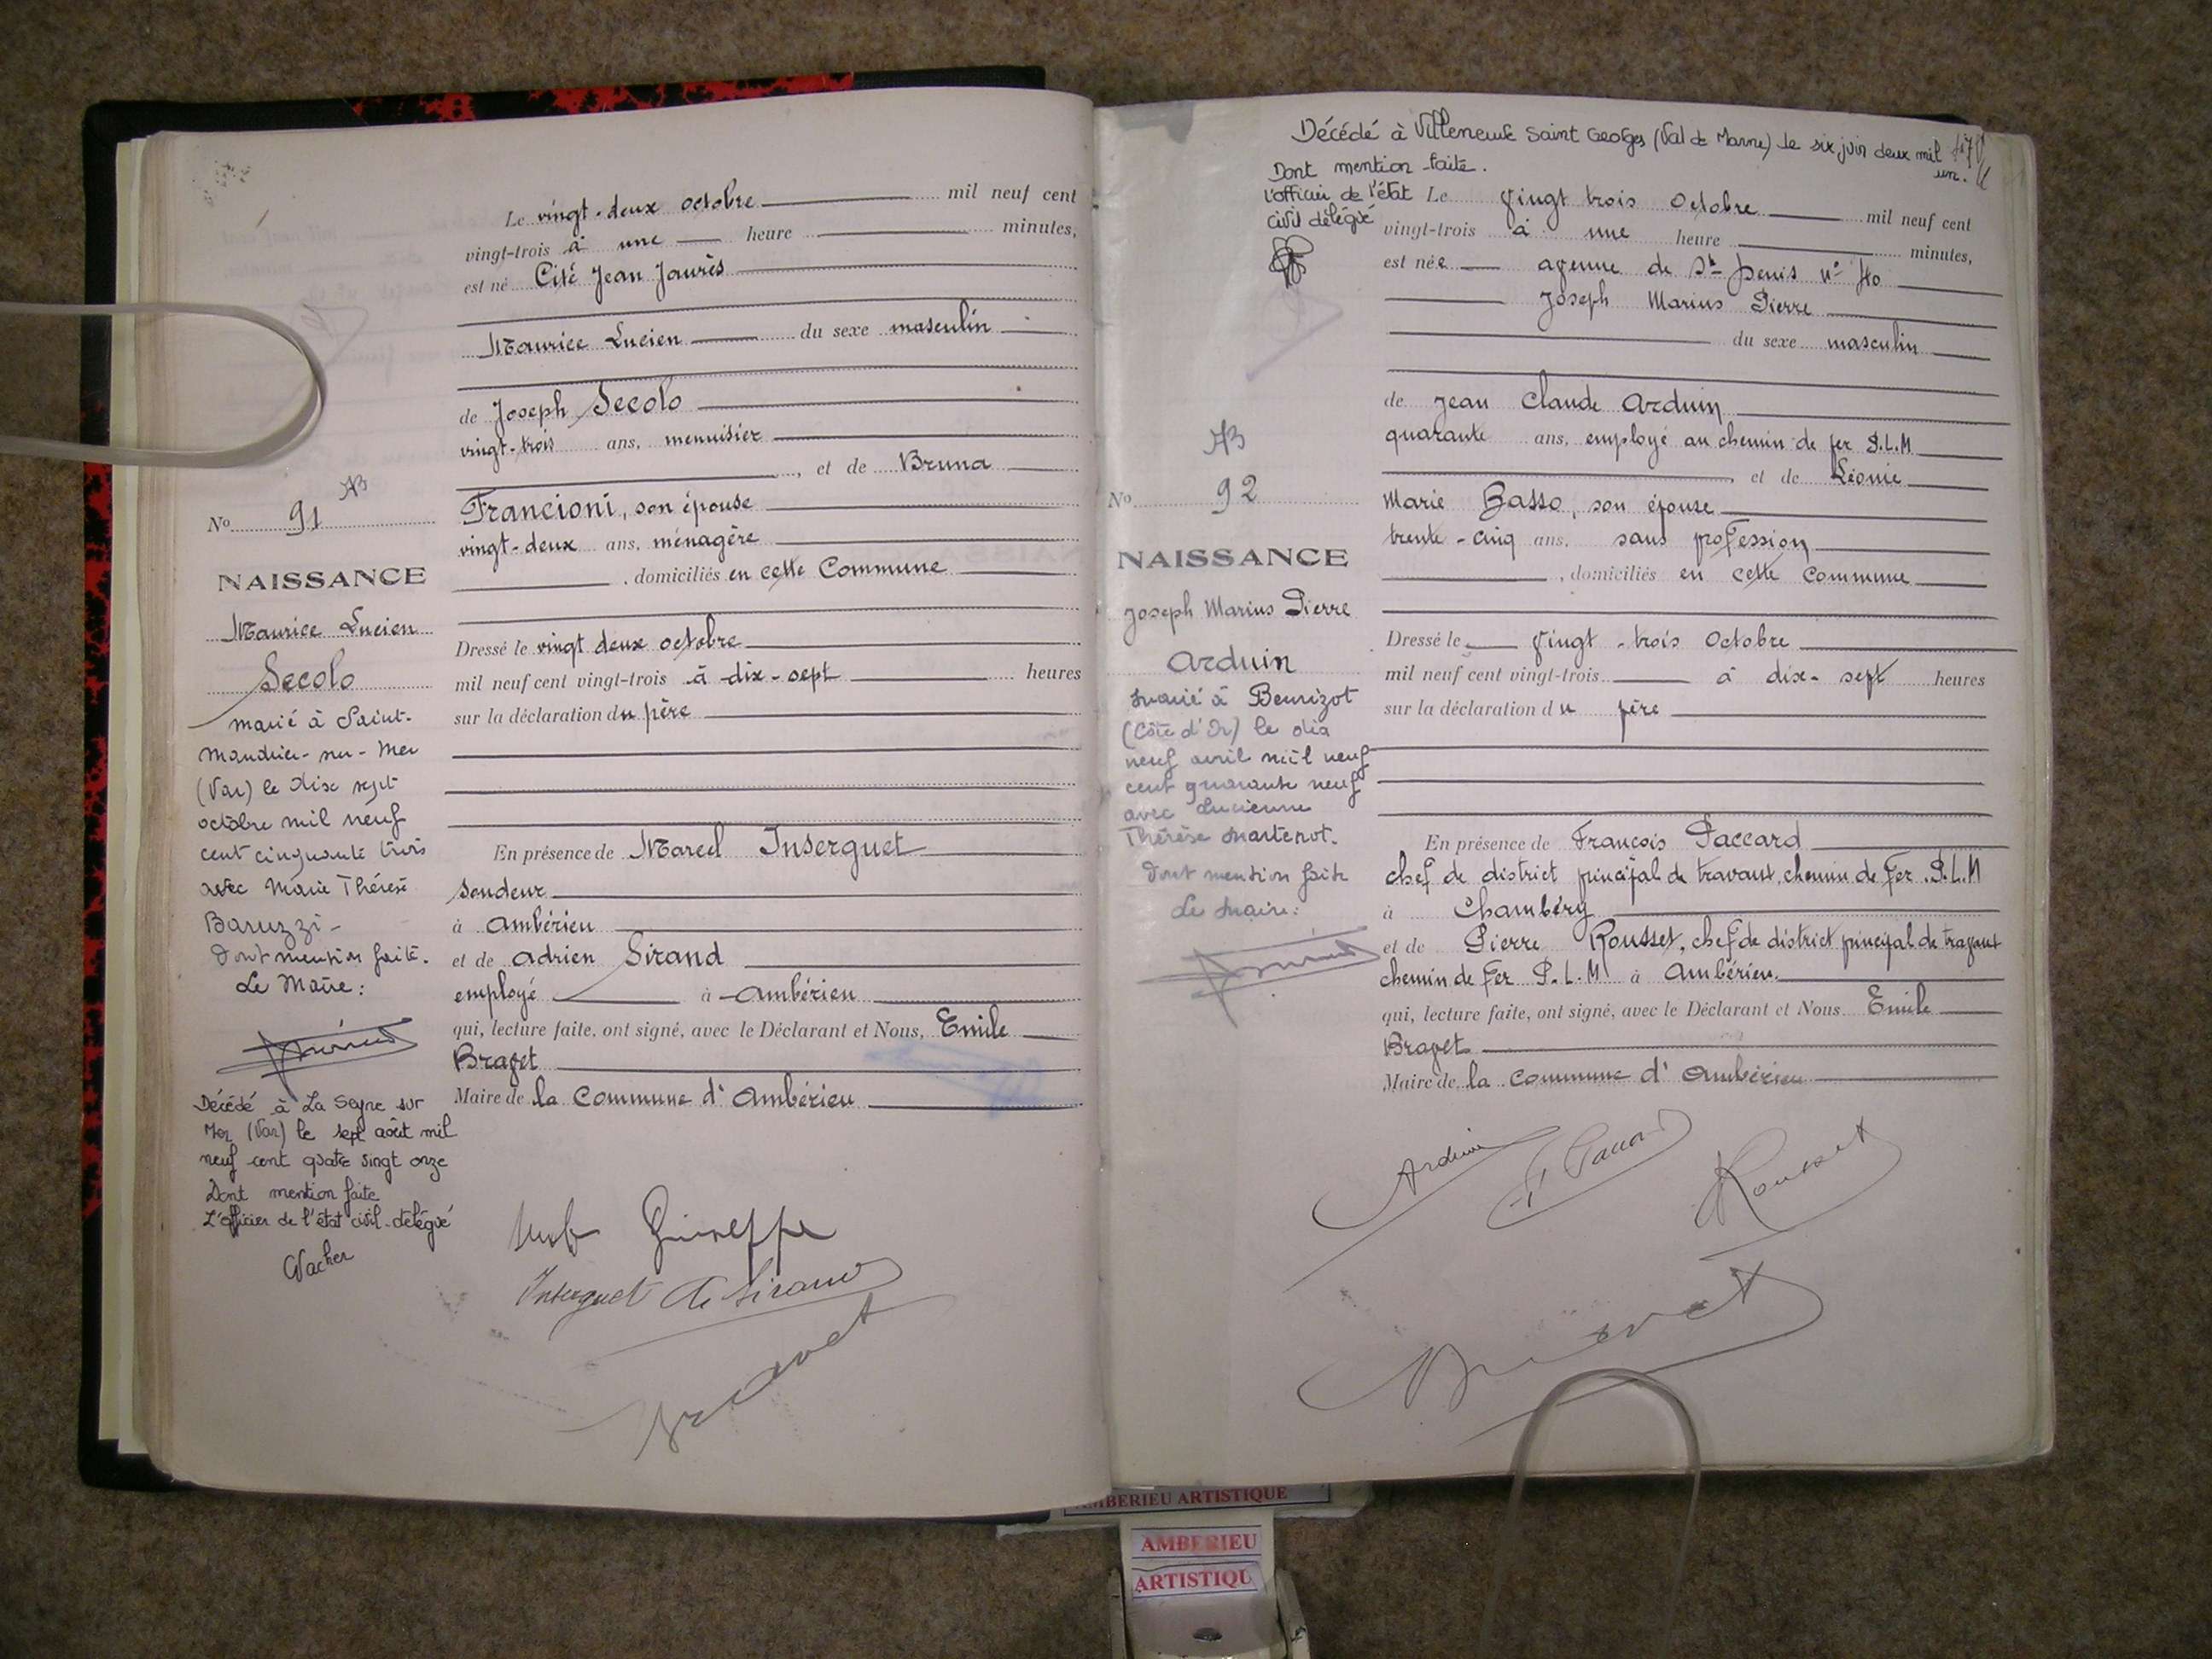 Le vingt-deux octobre mil neuf cent
vingt-trois à une heure minutes,
est né Cité Jean Jaurès
Maurice Lucien du sexe masculin
de Joseph Secolo
vingt-trois ans, menuisier
, et de Bruna
Francioni, son épouse
vingt-deux ans, ménagère
, domiciliés en cette Commune
Dressé le vingt deux octobre
mil neuf cent vingt-trois à dix-sept heures
sur la déclaration du père
En présence de Marcel Inserguet
soudeur
à Ambérieu
et de Adrien Sirand
employé à Ambérieu
qui, lecture faite, ont signé, avec le Déclarant et Nous, Emile
Bravet
Maire de la Commune d'Ambérieu
Giuseppe
Inserguet A. Sirand
Bravet
AB
No 91
NAISSANCE
Maurice Lucien
Secolo
marié à Saint-
Mandrier-sur-Mer
(Var) le dix sept
octobre mil neuf
cent cinquante trois
avec Marie Thérèse
Baruzzi -
Dont mention faite.
Le Maire:
Décédé à La Seyne sur
Mer (Var) le sept août mil
neuf cent quatre vingt onze
Dont mention faite
L'officier de l'état civil délégué
Vacher
Décédé à Villeneuve Saint Georges (Val de Marne) le six juin deux mil
un.
Dont mention faite.
l'officier de l'état
civil délégué
Le Vingt trois Octobre mil neuf cent
vingt-trois à une heure minutes,
est née avenue de St Denis n° 40
Joseph Marius Pierre
du sexe masculin
de Jean Claude Arduin
quarante ans, employé au chemin de fer P.L.M
et de Léonie
Marie Basso, son épouse
trente-cinq ans, sans profession
, domiciliés en cette Commune
Dressé le vingt-trois Octobre
mil neuf cent vingt-trois à dix-sept heures
sur la déclaration du père
En présence de François Paccard
chef de district principal de travaux, chemin de Fer P.L.M
à Chambéry
et de Pierre Rousset, chef de district principal de travaux
chemin de Fer P.L.M à Ambérieu.
qui, lecture faite, ont signé, avec le Déclarant et Nous Emile
Bravet
Maire de la Commune d'Ambérieu
Arduin F Paccard Rousset
Bravet
AB
No 92
NAISSANCE
Joseph Marius Pierre
Arduin
marié à Beurizot
(Côte d'Or) le dix
neuf avril mil neuf
cent quarante neuf
avec Lucienne
Thérèse Martenot.
Dont mention faite
Le Maire:
AMBERIEU ARTISTIQUE
AMBERIEU
ARTISTIQU